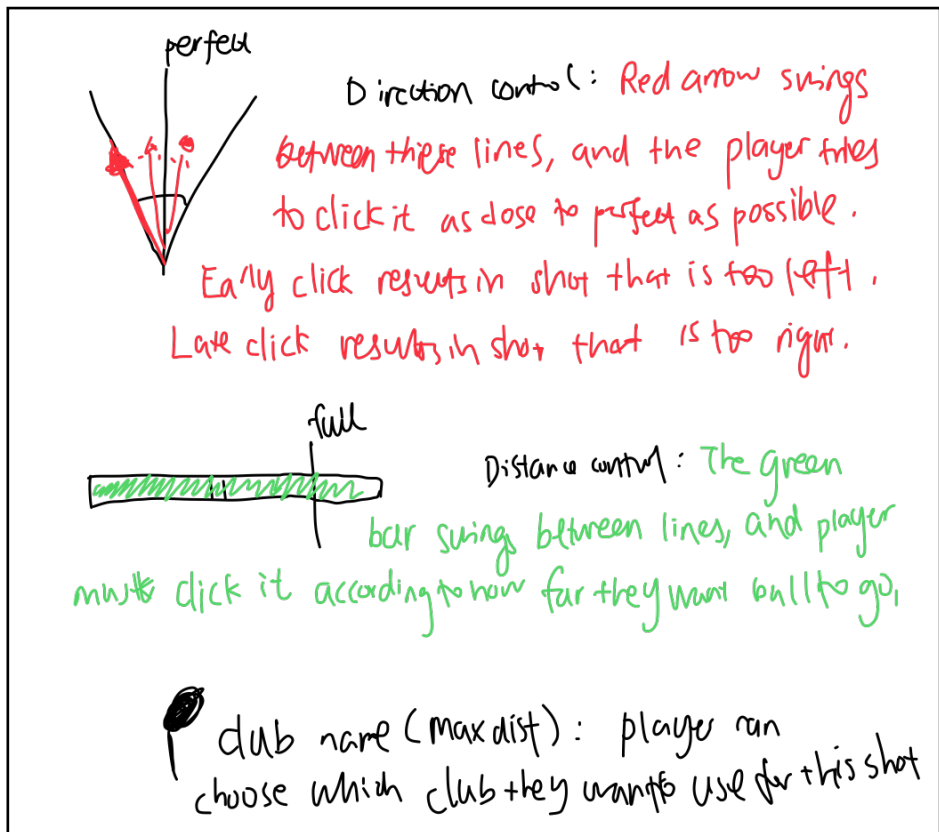 perfect
Direction control: Red arrow swings
between these lines, and the player tries
to click it as close to perfect as possible.
Early click results in shot that is too left.
Late click results in shot that is too right.
full
Distance control: The green
bar swings between lines, and player
must click it according to how far they want ball to go,
club name (max dist): player can
choose which club they want to use for this shot